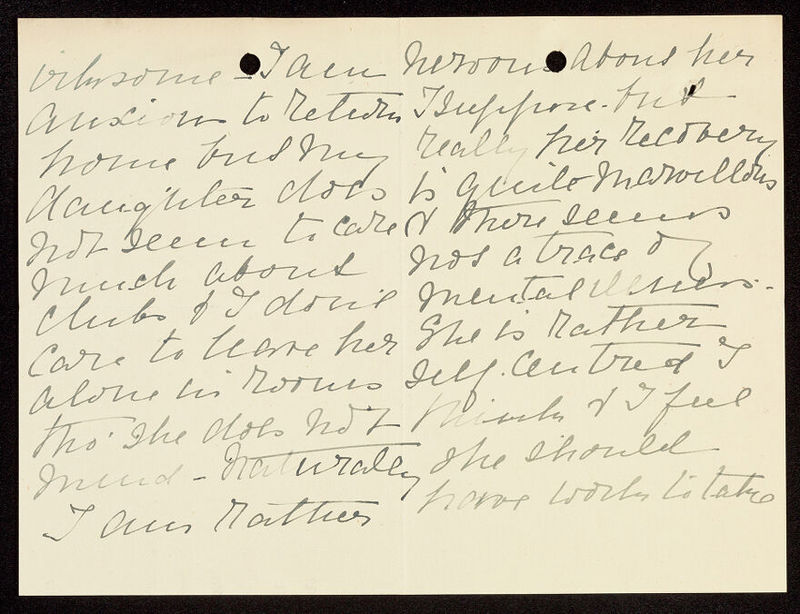 irksome - I am
anxious to return
home but my
daughter does
not seem to care
much about
clubs & I don't
care to leave her
alone in rooms
tho' she does not
mind - Naturally
I am rather
nervous about her
I suppose. but
really her recovery
is quite marvellous
& there seems
not a trace of
mental illness.
She is rather
self. centred I
think & I feel
she should
have work to take